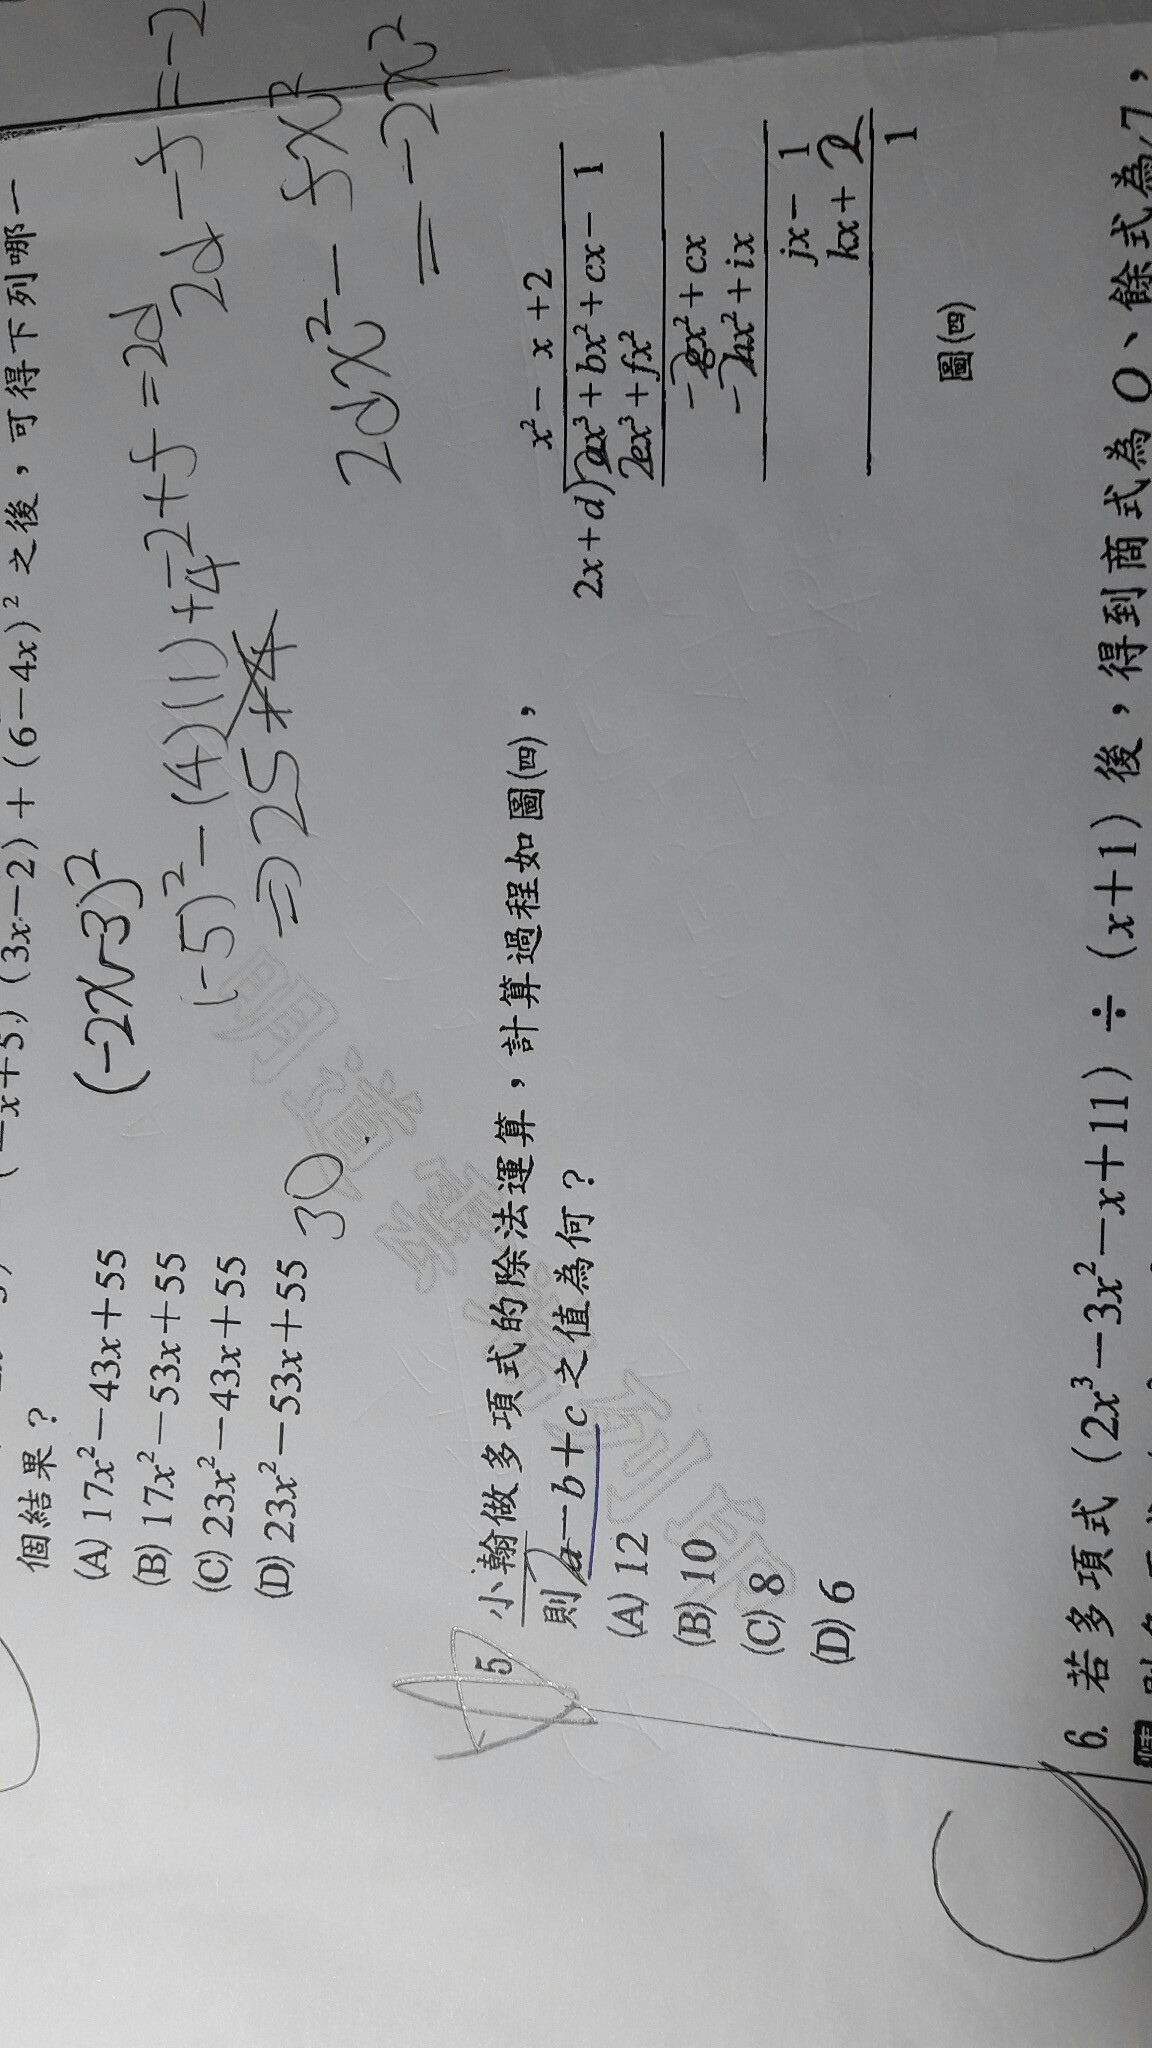 (－x＋5)(3x－2)＋(6－4x)² 之後，可得下列哪一
個結果？
(A) 17x²－43x＋55
(B) 17x²－53x＋55
(C) 23x²－43x＋55
(D) 23x²－53x＋55
(-2x-3)²
(-5)²-(4)(11)+
-2+f=2d
2d-f=-2
⇒25+4
30
2dx²-fx²
=-2x²
5. 小翰做多項式的除法運算，計算過程如圖(四)，
則 a－b＋c 之值為何？
(A) 12
(B) 10
(C) 8
(D) 6
x²－ x ＋2
2x＋d)ax³＋bx²＋cx－ 1
2ex³＋fx²
-gx²＋cx
-hx²＋ix
jx－ 1
kx＋ 2
1
圖(四)
明道
6. 若多項式 (2x³－3x²－x＋11) ÷ (x＋1) 後，得到商式為 Q、餘式為 7，